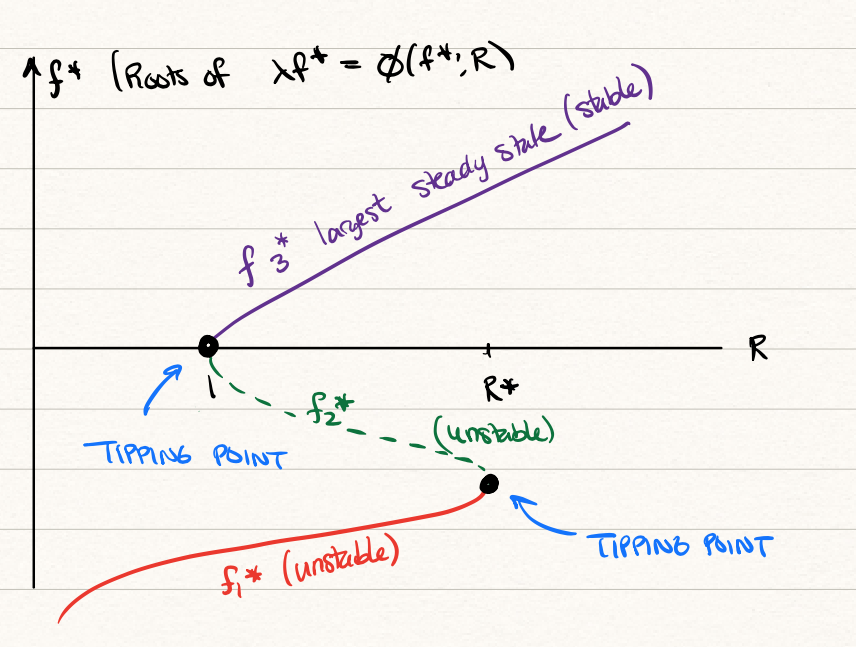 f* (Roots of λf* = φ(f*; R)
f₃* largest steady state (stable)
R
1
R*
f₂*
(unstable)
TIPPING POINT
TIPPING POINT
f₁* (unstable)